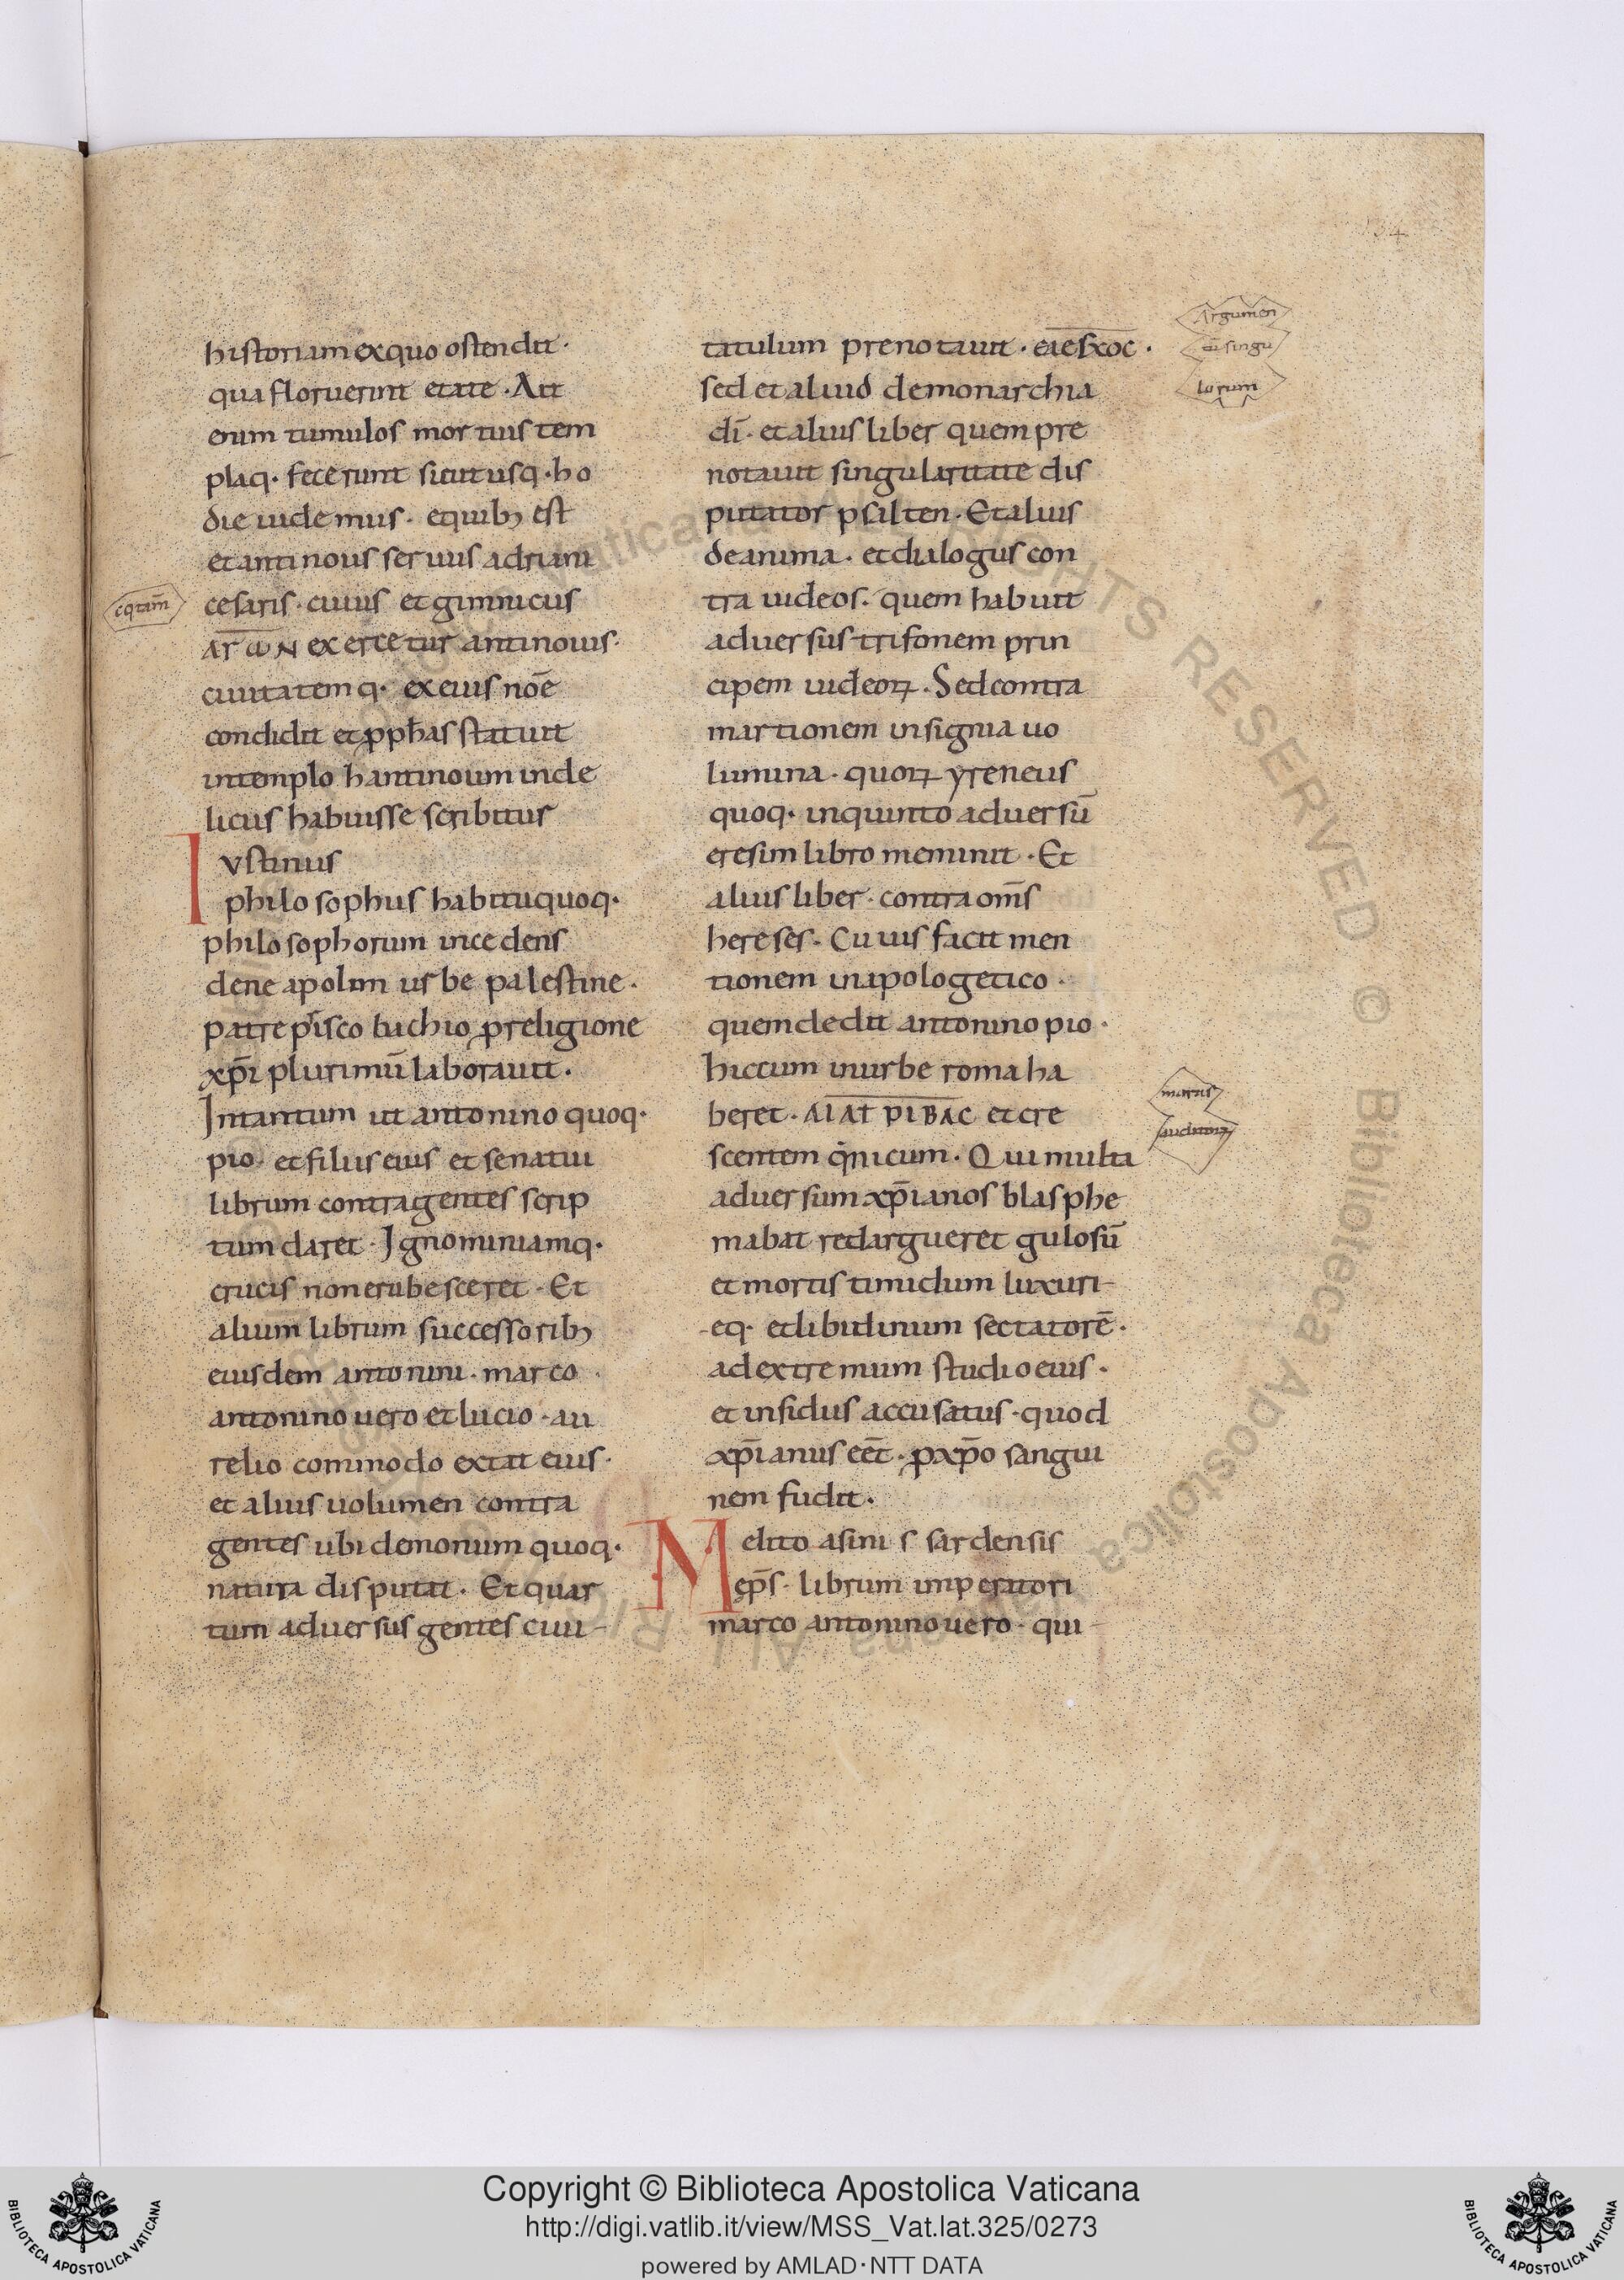 134
historiam ex quo ostendit·
qua floruerint etate · Att
enim tumulos mortuis tem
plaq· fecerunt sicut usq· ho
die uidemus· e quib; est
et antinous seruus adriani
cesaris · cuius et gimnicus
cqtam̄
ΑΓωΝ exercetur antinouis·
ciuitatemq· ex eius noē
condidit et ꝓphas statuit
in templo hantinoum inde
licus habuisse scribitur
Iustinus
philosophus habitu quoq·
philosophorum incedens
de neapolim urbe palestine·
patre pisco bachio ꝓ religione
xp̄i plurimū laborauit·
Intantum ut antonino quoq·
pio· et filiis eius et senatui
librum contra gentes scrip
tum daret · Ignominiamq·
crucis non erubesceret · Et
alium librum successorib;
eiusdem antonini · marco
antonino uero et lucio · au
relio commodo extat eius·
et alius uolumen contra
gentes ubi demonum quoq·
natura disputat · Et quar
tum aduersus gentes cuiu-
tatulum prenotauit · ελεΓχοc ·
Argumen
sed et aliud de monarchia
lorum
di̅ · et alius liber quem pre
notauit singularitate dis
putator psilten · Et alius
de anima · et dialogus con
tra iudeos · quem habuit
aduersus trifonem prin
cipem iudeoꝝ · Sed contra
martionem insignia uo
lumina · quoꝝ yreneus
quoq· in quinto aduersū
eresim libro meminit · Et
alius liber · contra om̄s
hereses · Cuius facit men
tionem in apologetico ·
quem dedit antonino pio ·
hic cum in urbe roma ha
beret · ΔΙΑΤΡΙΒΑC et cre
scentem q̇nicum · Qui multa
aduersum xp̄ianos blasphe
mabat redargueret gulosū
et mortis timidum luxuri-
-eq· et libidinum sectatorē·
ad extremum studio eius·
et insidiis accusatus · quod
xp̄ianus eēt · ꝓ xp̄o sangui
nem fudit·
Melito asini s sardensis
ep̄s · librum imperatori
marco antonino uero · qui-
RIGHTS RESERVED © Biblioteca Apostolica Vaticana
Copyright © Biblioteca Apostolica Vaticana
http://digi.vatlib.it/view/MSS_Vat.lat.325/0273
powered by AMLAD·NTT DATA
BIBLIOTECA APOSTOLICA VATICANA
BIBLIOTECA APOSTOLICA VATICANA